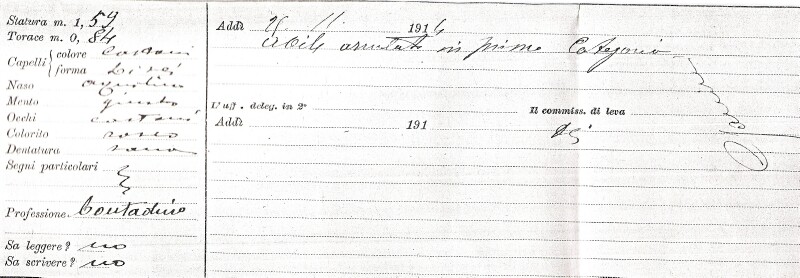 Statura m. 1, 59
Torace m. 0, 84
Capelli { colore castani
forma lisci
Naso aquilino
Mento giusto
Occhi castani
Colorito roseo
Dentatura sana
Segni particolari
Professione. Contadino
Sa leggere? no
Sa scrivere? no
Addì 11. 1916
Abile arruolato in prima Categoria
L'uff. deleg. in 2º
Il commiss. di leva
Addì 191